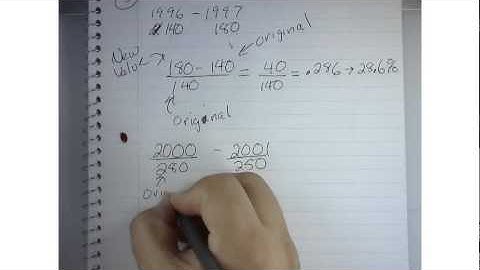 1996 - 1997
140 180
original
New Value
180 - 140 / 140 = 40 / 140 = .286 → 28.6%
original
2000 - 2001
280 250
Ori